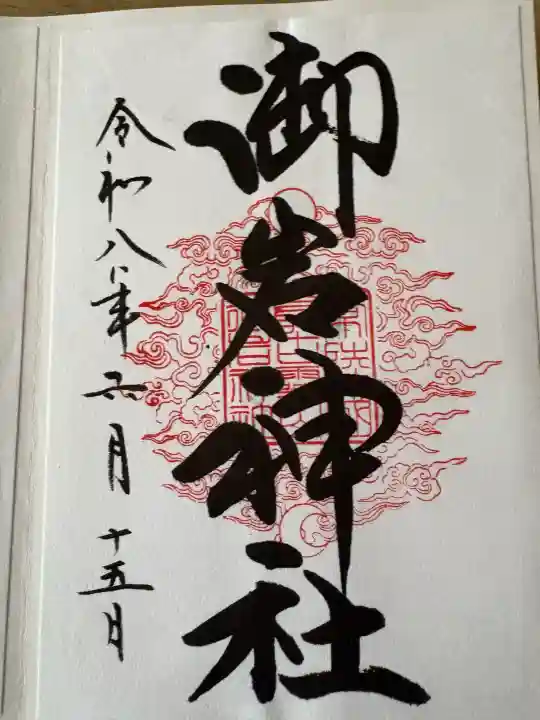 御岩神社
令和八年六月十五日